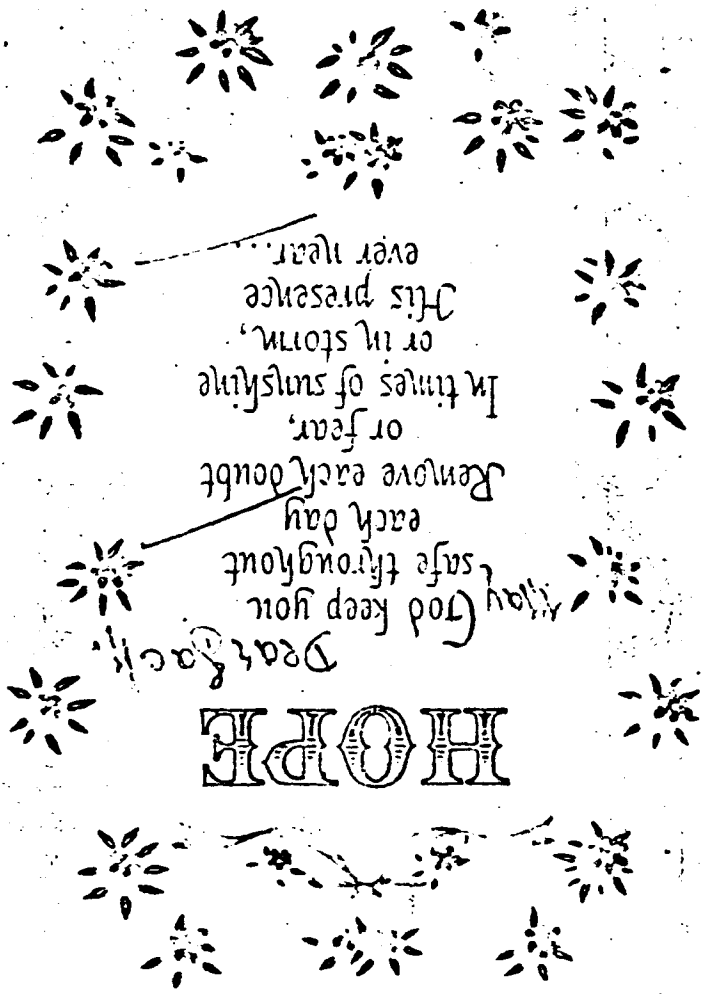 HOPE
Dear Jack,
May God keep you
safe throughout
each day
Remove each doubt
or fear,
In times of sunshine
or in storm,
His presence
ever near...